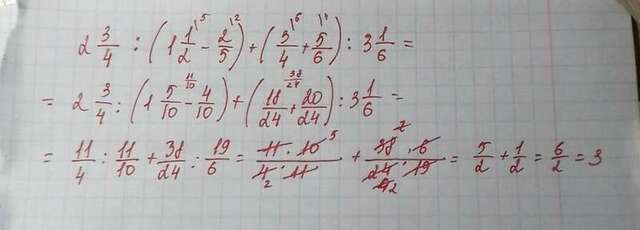 2 3/4 : (1 1/2 \5 - 2/5 \2) + (3/4 \6 + 5/6 \4) : 3 1/6 =
= 2 3/4 : (1 5/10 - 4/10) 11/10 + (18/24 + 20/24) 38/24 : 3 1/6 =
= 11/4 : 11/10 + 38/24 : 19/6 = 11 · 10 5 / 4 2 · 11 + 38 2 · 6 / 24 4 2 · 19 = 5/2 + 1/2 = 6/2 = 3